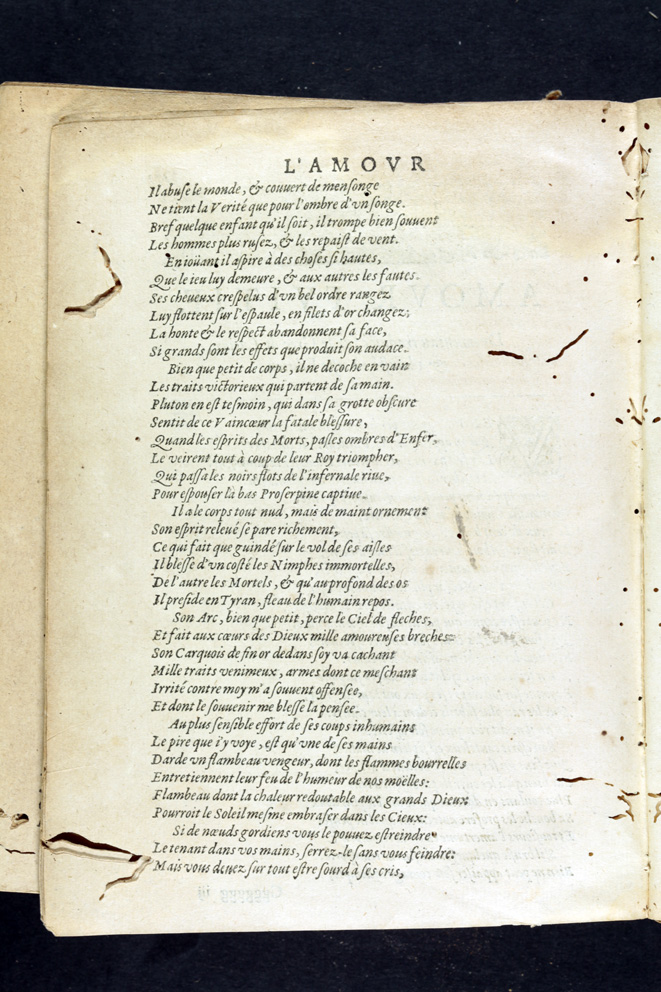 L'AMOVR
Il abuſe le monde, & couuert de menſonge
Ne tient la Verité que pour l'ombre d'vn ſonge.
Bref quelque enfant qu'il ſoit, il trompe bien ſouuent
Les hommes plus ruſez, & les repaiſt de vent.
En ioüant il aſpire à des choſes ſi hautes,
Que le ieu luy demeure, & aux autres les fautes.
Ses cheueux creſpelus d'vn bel ordre rangez
Luy flottent ſur l'eſpaule, en filets d'or changez;
La honte & le reſpect abandonnent ſa face,
Si grands ſont les effets que produit ſon audace.
Bien que petit de corps, il ne decoche en vain
Les traits victorieux qui partent de ſa main.
Pluton en eſt teſmoin, qui dans ſa grotte obſcure
Sentit de ce Vaincœur la fatale bleſſure,
Quand les eſprits des Morts, paſles ombres d'Enfer,
Le veirent tout à coup de leur Roy triompher,
Qui paſſa les noirs flots de l'infernale riue,
Pour eſpouſer là bas Proſerpine captiue.
Il a le corps tout nud, mais de maint ornement
Son eſprit releué ſe pare richement,
Ce qui fait que guindé ſur le vol de ſes aiſles
Il bleſſe d'vn coſté les Nimphes immortelles,
De l'autre les Mortels, & qu'au profond des os
Il preſide en Tyran, fleau de l'humain repos.
Son Arc, bien que petit, perce le Ciel de fleches,
Et fait aux cœurs des Dieux mille amoureuſes breches
Son Carquois de fin or dedans ſoy va cachant
Mille traits venimeux, armes dont ce meſchant
Irrité contre moy m'a ſouuent offenſée,
Et dont le ſouuenir me bleſſe la penſée.
Au plus ſenſible effort de ſes coups inhumains
Le pire que i'y voye, eſt qu'vne de ſes mains
Darde vn flambeau vengeur, dont les flammes bourrelles
Entretiennent leur feu de l'humeur de nos moëlles:
Flambeau dont la chaleur redoutable aux grands Dieux
Pourroit le Soleil meſme embraſer dans les Cieux:
Si de nœuds gordiens vous le pouuez eſtreindre
Le tenant dans vos mains, ſerrez-le ſans vous feindre:
Mais vous deuez ſur tout eſtre ſourd à ſes cris,